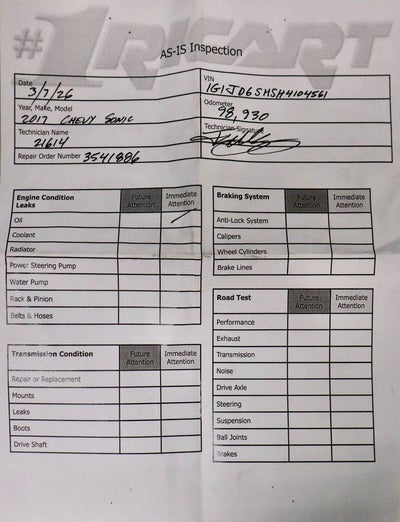 #1 RICART
AS-IS Inspection
Date 3/7/26
VIN 1G1JD6SHSH4104561
Year, Make, Model 2017 CHEVY SONIC
Odometer 98,930
Technician Name 21614
Technician Signature
Repair Order Number 3541886
Engine Condition Leaks Future Attention Immediate Attention
Oil
Coolant
Radiator
Power Steering Pump
Water Pump
Rack & Pinion
Belts & Hoses
Transmission Condition Future Attention Immediate Attention
Repair or Replacement
Mounts
Leaks
Boots
Drive Shaft
Braking System Future Attention Immediate Attention
Anti-Lock System
Calipers
Wheel Cylinders
Brake Lines
Road Test Future Attention Immediate Attention
Performance
Exhaust
Transmission
Noise
Drive Axle
Steering
Suspension
Ball Joints
Brakes